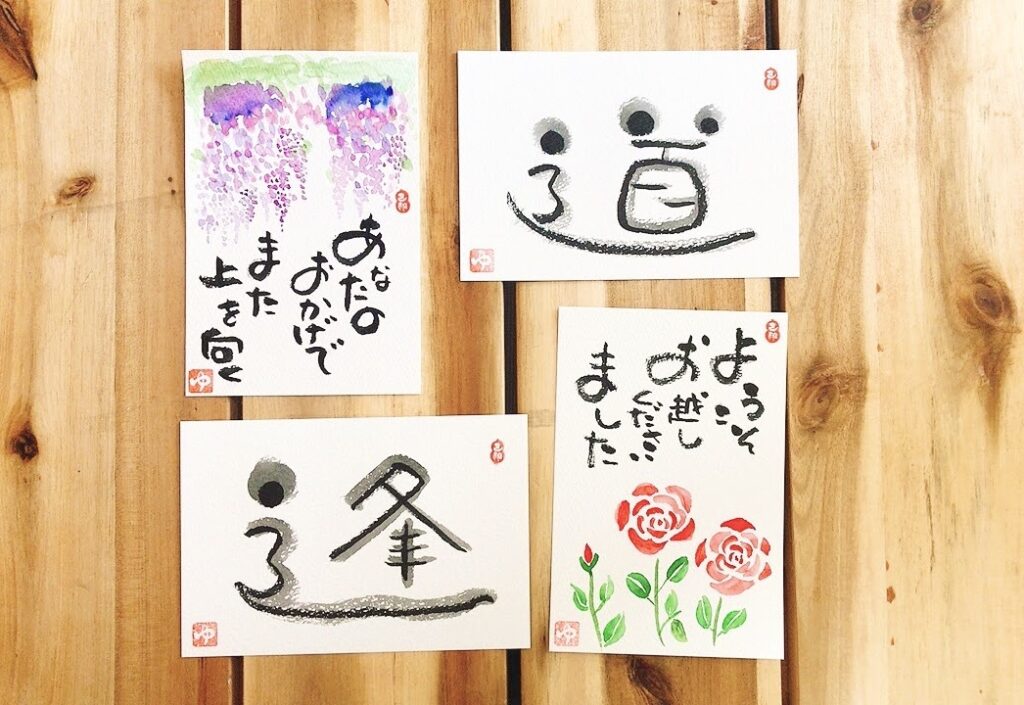 あなたの
おかげで
また
上を向く
ゆ
道
ゆ
逢
ゆ
ようこそ
お越し
ください
ました
ゆ